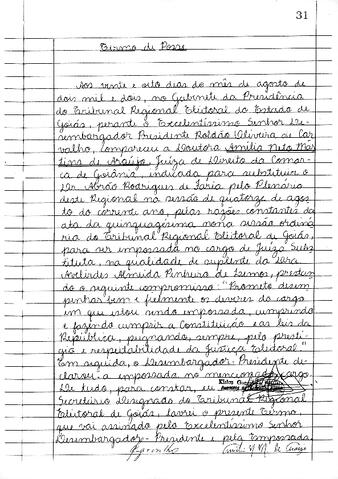 31
Termo de Posse
Aos vinte e oito dias do mês de agosto de
dois mil e dois, no Gabinete da Presidência
do Tribunal Regional Eleitoral do Estado de
Goiás, perante o Excelentíssimo Senhor De-
sembargador Presidente Roldão Oliveira de Car-
valho, compareceu a Doutora Amélia Neto Mar-
tins de Araújo, Juíza de Direito da Comar-
ca de Goiânia, indicada para substituir o
Dr. Abrão Rodrigues de Faria pelo Plenário
deste Regional na sessão de quatorze de agos-
to do corrente ano, pelas razões constantes da
ata da quinquagésima nona sessão ordiná-
ria do Tribunal Regional Eleitoral de Goiás,
para ser empossada no cargo de Juíza Subs-
tituta, na qualidade de suplente da Dra.
Almeida Pinheiro de Lemos, prestan-
do o seguinte compromisso: "Prometo desem-
penhar bem e fielmente os deveres do cargo
em que estou sendo empossada, cumprindo
e fazendo cumprir a Constituição e as leis da
República, pugnando, sempre, pelo prestí-
gio e respeitabilidade da Justiça Eleitoral."
Em seguida, o Desembargador-Presidente de-
clarou-a empossada no mencionado cargo.
De tudo, para constar, eu
Secretário Designado do Tribunal Regional
Eleitoral de Goiás, lavrei o presente Termo,
que vai assinado pelo Excelentíssimo Senhor
Desembargador-Presidente e pela Empossada.